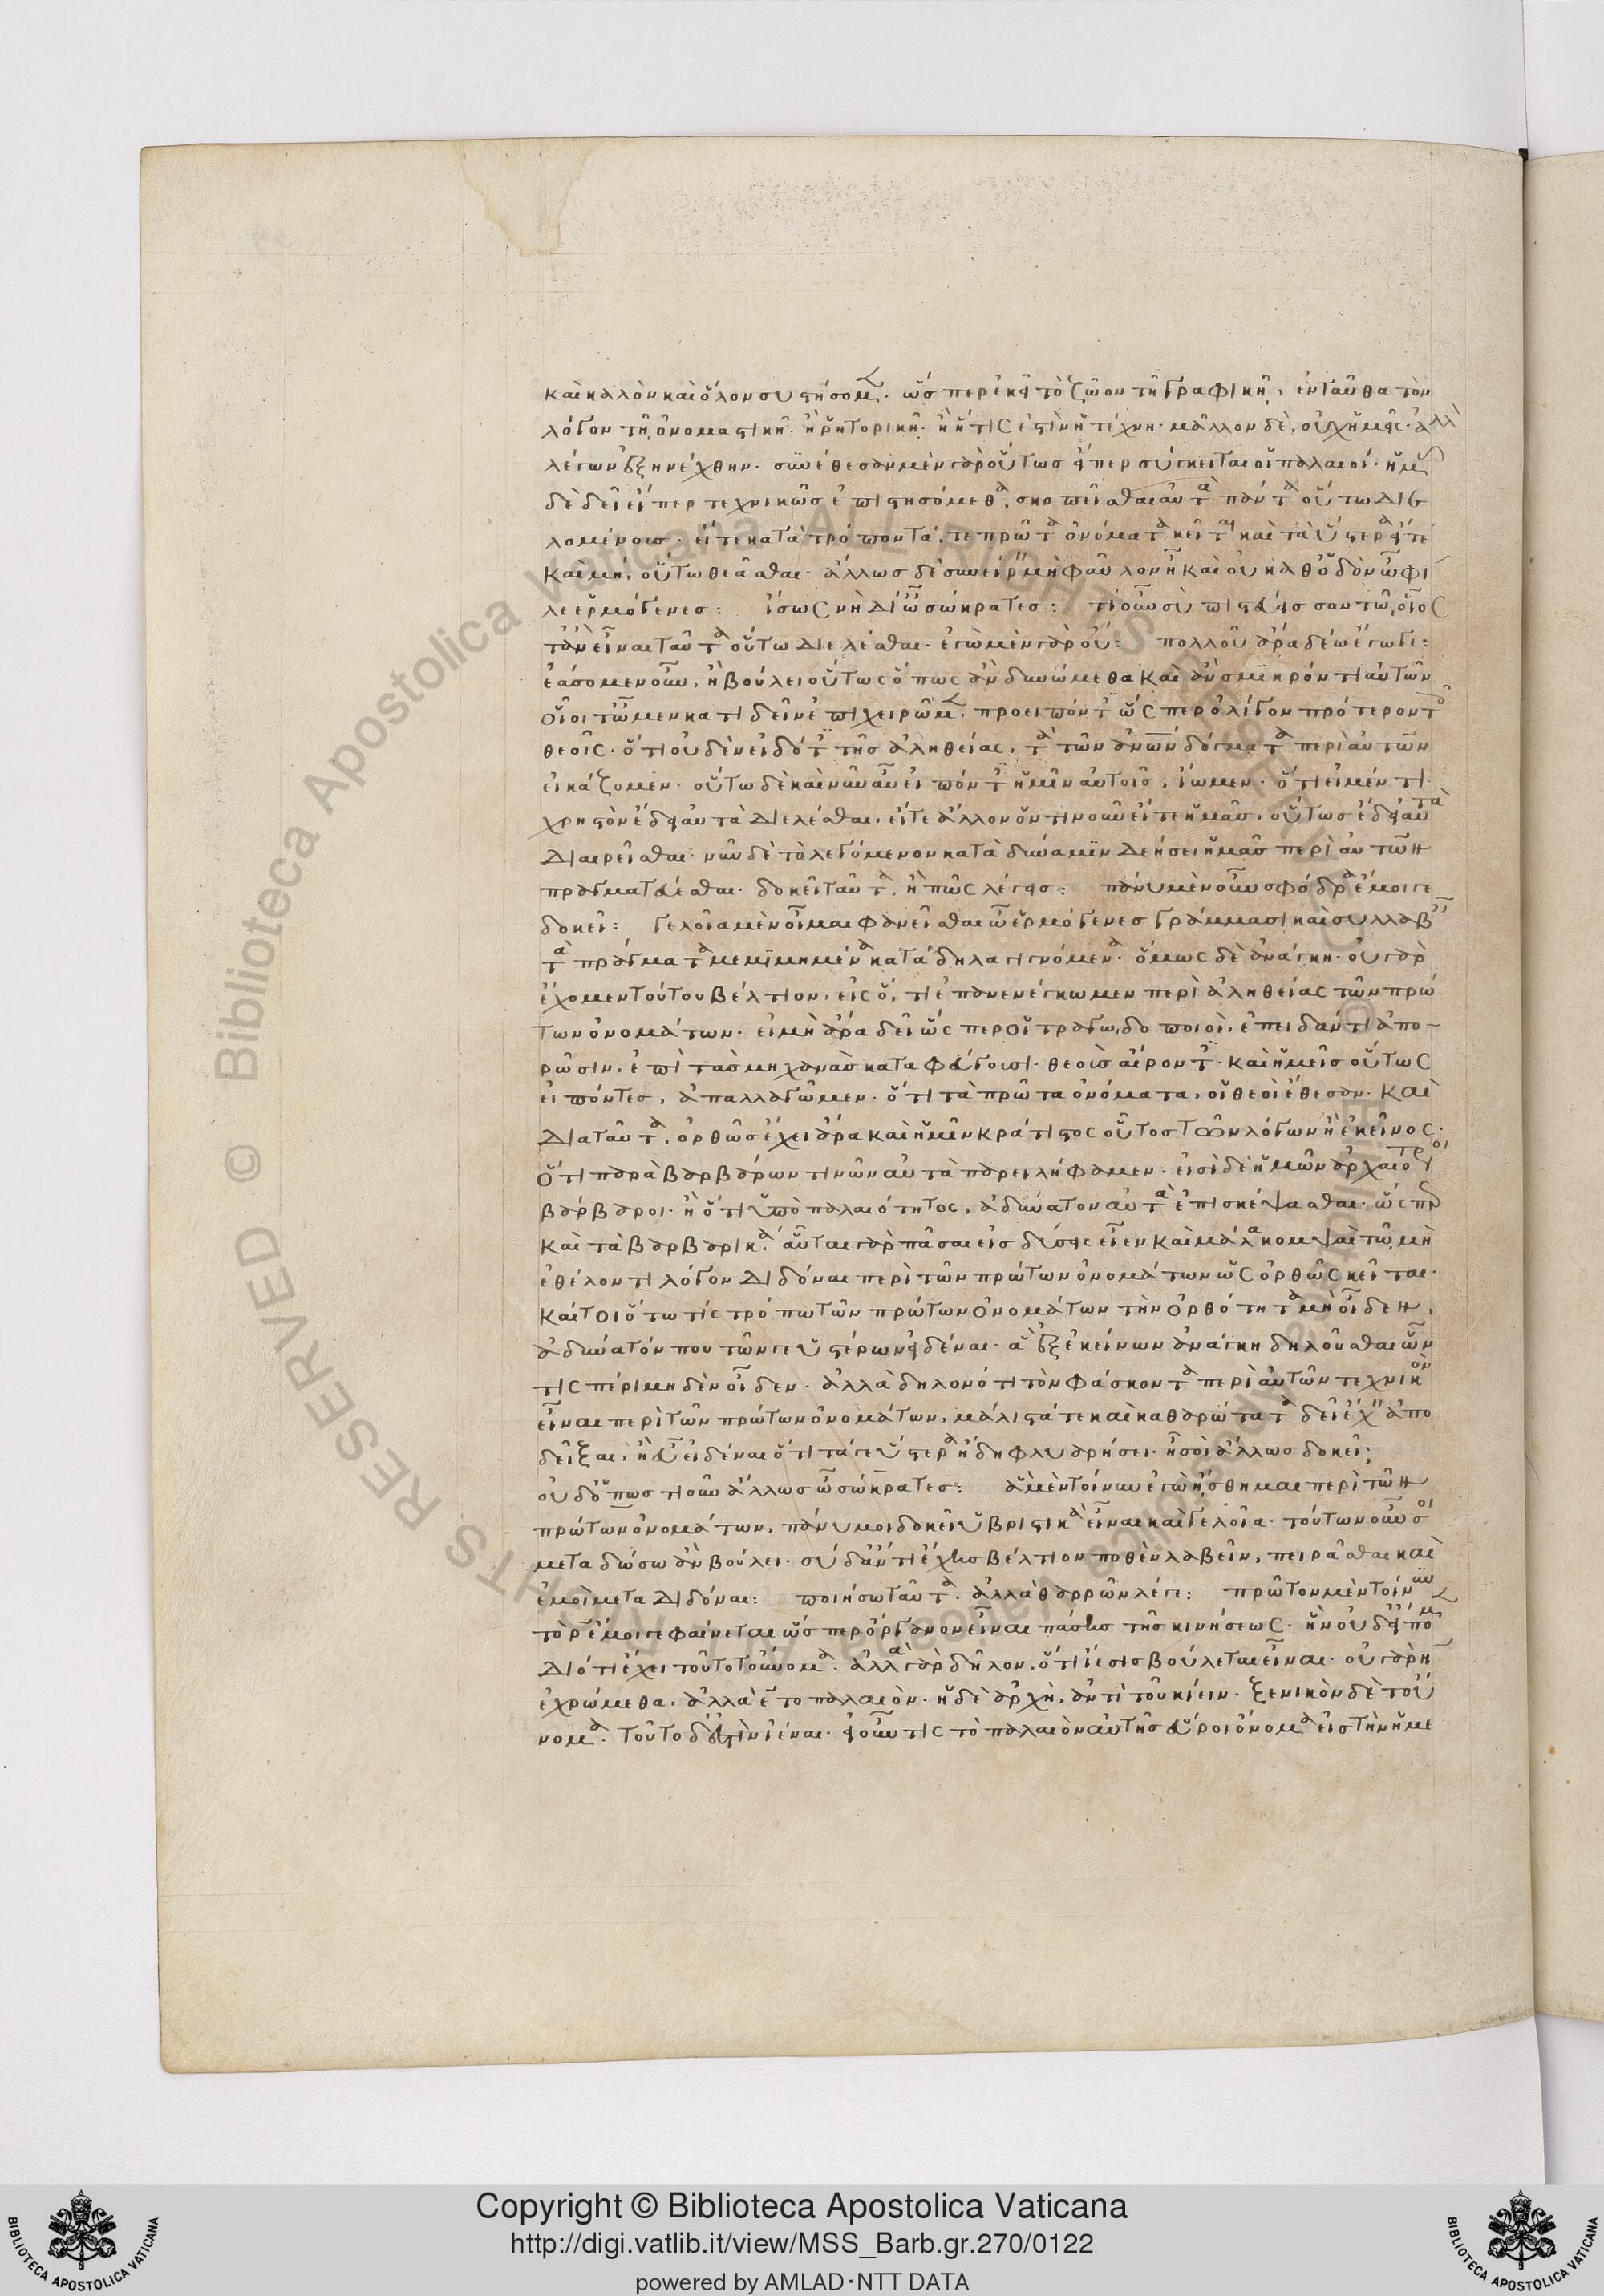 καὶ καλὸν καὶ ὅλον συστήσομεν. ὥσπερ ἐκεῖ τὸ ζῶον τῇ γραφικῇ, ἐνταῦθα τὸν
λόγον τῇ ὀνομαστικῇ. ἢ ῥητορικῇ. ἢ ἥτις ἐστὶν ἡ τέχνη. μᾶλλον δὲ, οὐχ ἡμεῖς. ἀλλὰ
λέγων ἐξηνέχθην. συνέθεσαν μὲν γὰρ οὕτως ᾗπερ σύγκειται οἱ παλαιοί. ἡμᾶς
δὲ δεῖ εἴπερ τεχνικῶς ἐπιστησόμεθα, σκοπεῖσθαι αὐτὰ πάντα οὕτω διε
λομένοις. εἴτε κατὰ τρόπον τά, τε πρῶτα ὀνόματα κεῖται καὶ τὰ ὕστερα εἴτε
καὶ μή, οὕτω θεᾶσθαι. ἄλλως δὲ συνείρειν μὴ φαῦλον ᾖ καὶ οὐ καθ' ὁδὸν ὦ φί
λε ἑρμόγενες: ἴσως νὴ Δί' ὦ σώκρατες: τί οὖν σὺ πιστεύεις σαυτῷ, οἷός
τ' ἂν εἶναι ταῦτα οὕτω διελέσθαι. ἐγὼ μὲν γὰρ οὔ: πολλοῦ ἄρα δέω ἔγωγε:
ἐάσομεν οὖν, ἢ βούλει οὕτως ὅπως ἂν δυνώμεθα καὶ ἂν σμικρόν τι αὐτῶν
οἷοί τ' ὦμεν κατιδεῖν ἐπιχειρῶμεν, προειπόντες ὥσπερ ὀλίγον πρότερον τοῖς
θεοῖς. ὅτι οὐδὲν εἰδότες τῆς ἀληθείας, τὰ τῶν ἀνων δόγματα περὶ αὐτῶν
εἰκάζομεν. οὕτω δὲ καὶ νῦν αὖ εἰπόντες ἡμῖν αὐτοῖς, ἴωμεν. ὅτι εἰ μέν τι
χρηστὸν ἔδει αὐτὰ διελέσθαι, εἴτε ἄλλον ὁντινοῦν εἴτε ἡμᾶς, οὕτως ἔδει αὐτὰ
διαιρεῖσθαι. νῦν δὲ τὸ λεγόμενον κατὰ δύναμιν δεήσει ἡμᾶς περὶ αὐτῶν
πραγματεύεσθαι. δοκεῖ ταῦτα, ἢ πῶς λέγεις: πάνυ μὲν οὖν σφόδρα ἔμοιγε
δοκεῖ: γελοῖα μὲν οἶμαι φανεῖσθαι ὦ ἑρμόγενες γράμμασι καὶ συλλαβαῖς
τὰ πράγματα μεμιμημένα κατάδηλα γιγνόμενα. ὅμως δὲ ἀνάγκη. οὐ γὰρ
ἔχομεν τούτου βέλτιον, εἰς ὅ, τι ἐπανενέγκωμεν περὶ ἀληθείας τῶν πρώ
των ὀνομάτων. εἰ μὴ ἄρα δεῖ ὥσπερ οἱ τραγῳδοποιοὶ, ἐπειδάν τι ἀπο-
ρῶσιν, ἐπὶ τὰς μηχανὰς καταφεύγουσι. θεοὺς αἴροντες. καὶ ἡμεῖς οὕτως
εἰπόντες, ἀπαλλαγῶμεν. ὅτι τὰ πρῶτα ὀνόματα, οἱ θεοὶ ἔθεσαν. καὶ
διὰ ταῦτα, ὀρθῶς ἔχει ἄρα καὶ ἡμῖν κράτιστος οὗτος τῶν λόγων ἢ ἐκεῖνος.
ὅτι παρὰ βαρβάρων τινῶν αὐτὰ παρειλήφαμεν. εἰσὶ δὲ ἡμῶν ἀρχαιότεροι
βάρβαροι. ἢ ὅτι ὑπὸ παλαιότητος, ἀδύνατον αὐτὰ ἐπισκέψασθαι. ὥσπερ
καὶ τὰ βαρβαρικά. αὗται γὰρ πᾶσαι εἰσδύσεις εἶεν καὶ μάλα κομψαὶ τῷ, μὴ
ἐθέλοντι λόγον διδόναι περὶ τῶν πρώτων ὀνομάτων ὡς ὀρθῶς κεῖται.
καίτοι ὅτῳ τίς τρόπῳ τῶν πρώτων ὀνομάτων τὴν ὀρθότητα μὴ οἶδεν,
ἀδύνατόν που τῶν γε ὑστέρων εἰδέναι. ἃ ἐξ ἐκείνων ἀνάγκη δηλοῦσθαι ὧν
τὶς πέρι μηδὲν οἶδεν. ἀλλὰ δῆλον ὅτι τὸν φάσκοντα περὶ αὐτῶν τεχνικὸν
εἶναι περὶ τῶν πρώτων ὀνομάτων, μάλιστά τε καὶ καθαρώτατα δεῖ ἔχειν ἀπο
δεῖξαι, ἢ εὖ εἰδέναι ὅτι τά γε ὕστερα ἤδη φλυαρήσει. ἢ σοὶ ἄλλως δοκεῖ;
οὐδ' ὅπως τι οὖν ἄλλως ὦ σώκρατες: ἃ μὲν τοίνυν ἐγὼ ᾔσθημαι περὶ τῶν
πρώτων ὀνομάτων, πάνυ μοι δοκεῖ ὑβριστικὰ εἶναι καὶ γελοῖα. τούτων οὖν σοι
μεταδώσω ἂν βούλει. σὺ δ' ἄν τι ἔχῃς βέλτιον ποθὲν λαβεῖν, πειρᾶσθαι καὶ
ἐμοὶ μεταδιδόναι: ποιήσω ταῦτα. ἀλλὰ θαρρῶν λέγε: πρῶτον μὲν τοίνυν
τὸ ρ ἔμοιγε φαίνεται ὥσπερ ὄργανον εἶναι πάσης τῆς κινήσεως. ἣν οὐδ' εἴπομεν
διότι ἔχει τοῦτο τοὔνομα. ἀλλὰ γὰρ δῆλον, ὅτι ἴεσις βούλεται εἶναι. οὐ γὰρ η
ἐχρώμεθα, ἀλλὰ ε το παλαιὸν. ἡ δὲ ἀρχὴ, ἀντὶ τοῦ κίειν. ξενικὸν δὲ τοὔ
νομα. τοῦτο δ' ἐστὶν ἰέναι. εἰ οὖν τις τὸ παλαιὸν αὐτῆς εὕροι ὄνομα εἰς τὴν ἡμε
Copyright © Biblioteca Apostolica Vaticana
http://digi.vatlib.it/view/MSS_Barb.gr.270/0122
powered by AMLAD·NTT DATA